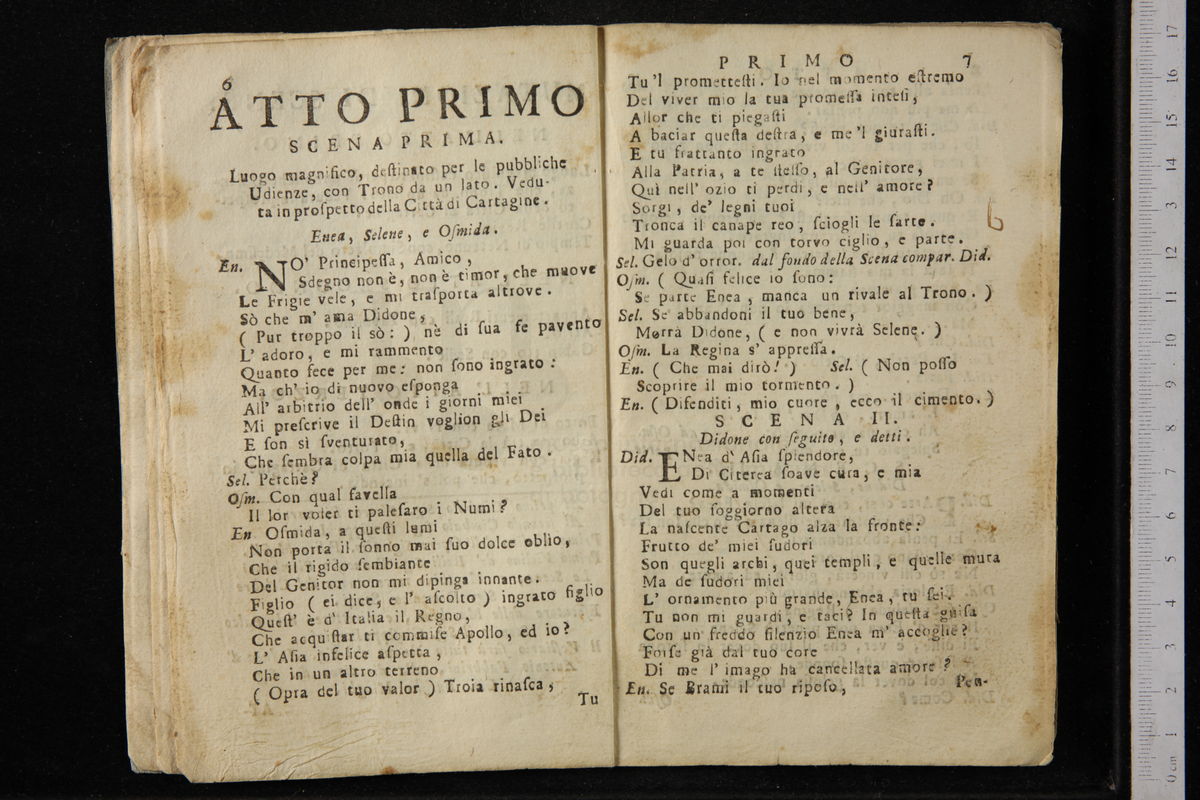 6
ATTO PRIMO
SCENA PRIMA.
Luogo magnifico, deſtinato per le pubbliche
Udienze, con Trono da un lato. Vedu-
ta in proſpetto della Città di Cartagine.
Enea, Selene, e Oſmida.
En. NO' Principeſſa, Amico,
Sdegno non è, non è timor, che muove
Le Frigie vele, e mi traſporta altrove.
Sò che m' ama Didone,
( Pur troppo il sò: ) nè di ſua fe pavento
L' adoro, e mi rammento
Quanto fece per me: non ſono ingrato:
Ma ch' io di nuovo eſponga
All' arbitrio dell' onde i giorni miei
Mi preſcrive il Deſtin voglion gli Dei
E ſon sì ſventurato,
Che ſembra colpa mia quella del Fato.
Sel. Perchè?
Oſm. Con qual favella
Il lor voler ti paleſaro i Numi?
En Oſmida, a queſti lumi
Non porta il ſonno mai ſuo dolce oblio,
Che il rigido ſembiante
Del Genitor non mi dipinga innante.
Figlio ( ei dice, e l' aſcolto ) ingrato figlio
Queſt' è d' Italia il Regno,
Che acquiſtar ti commiſe Apollo, ed io?
L' Aſia infelice aſpetta,
Che in un altro terreno
( Opra del tuo valor ) Troia rinaſca,
Tu
PRIMO 7
Tu 'l prometteſti. Io nel momento eſtremo
Del viver mio la tua promeſſa inteſi,
Allor che ti piegaſti
A baciar queſta deſtra, e me 'l giuraſti.
E tu frattanto ingrato
Alla Patria, a te ſteſſo, al Genitore,
Quì nell' ozio ti perdi, e nell' amore?
Sorgi, de' legni tuoi
Tronca il canape reo, ſciogli le ſarte.
Mi guarda poi con torvo ciglio, e parte.
Sel. Gelo d' orror. dal fondo della Scena compar. Did.
Oſm. ( Quaſi felice io ſono:
Se parte Enea, manca un rivale al Trono. )
Sel. Se abbandoni il tuo bene,
Morrà Didone, ( e non vivrà Selene. )
Oſm. La Regina s' appreſſa.
En. ( Che mai dirò! ) Sel. ( Non poſſo
Scoprire il mio tormento. )
En. ( Difenditi, mio cuore, ecco il cimento. )
SCENA II.
Didone con ſeguito, e detti.
Did. ENea d' Aſia ſpiendore,
Di Citerea ſoave cura, e mia
Vedi come a momenti
Del tuo ſoggiorno altera
La naſcente Cartago alza la fronte:
Frutto de' miei ſudori
Son quegli archi, quei templi, e quelle mura
Ma de ſudori miei
L' ornamento più grande, Enea, tu ſei.
Tu non mi guardi, e taci? In queſta guiſa
Con un freddo ſilenzio Enea m' accoglie?
Forſe già dal tuo core
Di me l' imago ha cancellata amore?
En. Se Brami il tuo ripoſo,
Pen-
0 cm 1 2 3 4 5 6 7 8 9 10 11 12 13 14 15 16 17